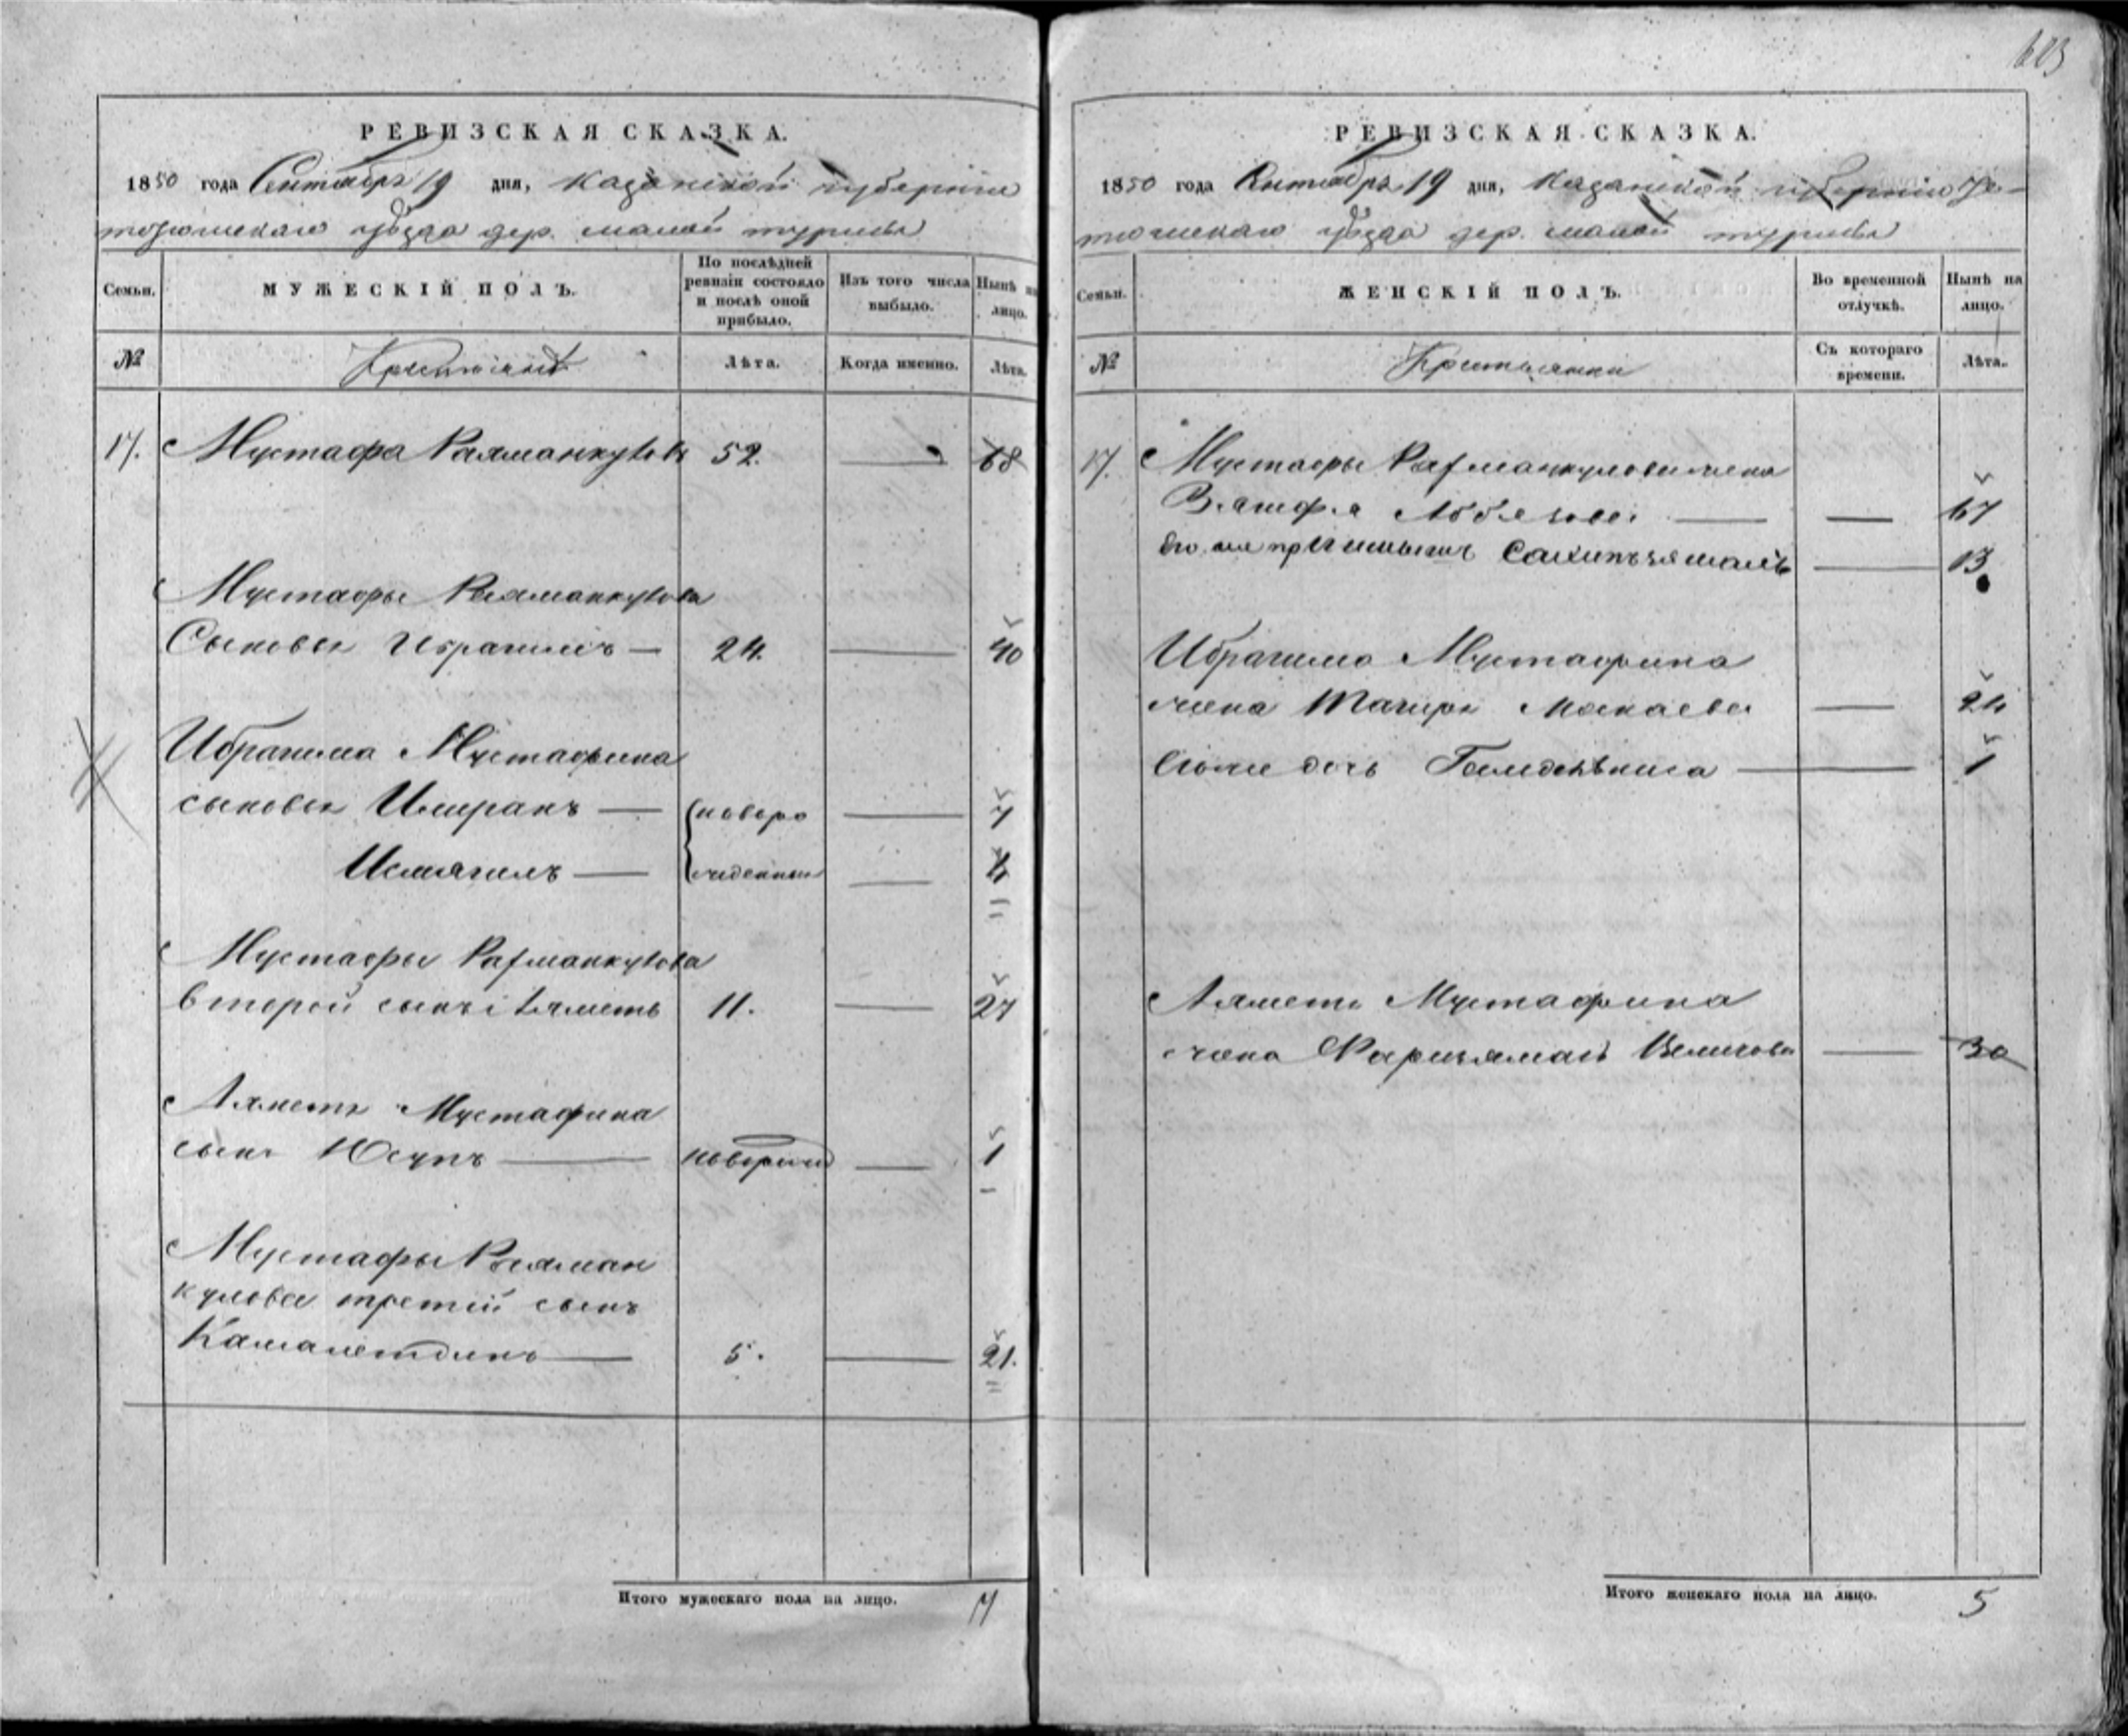 623
РЕВИЗСКАЯ СКАЗКА.
1850 года Сентября 19 дня, Казанской губернии
тетюшскаго уѣзда дер. малой турмы
Семьи.
МУЖЕСКІЙ ПОЛЪ.
По послѣдней ревизіи состояло и послѣ оной прибыло.
Изъ того числа выбыло.
Нынѣ на лицо.
№
Крестьяне
Лѣта.
Когда именно.
Лѣта.
17. Мустафа Рахманкуловъ 52. — 68
Мустафы Рахманкулова
Сыновья Ибрагимъ — 24. — 40
Ибрагима Мустафина
сыновья Имранъ — новоро — 7
Исмагилъ — жденные — 4
Мустафы Рахманкулова
второй сынъ Ахметь 11. — 27
Ахметя Мустафина
сынъ Юсупъ — новорожд — 1
Мустафы Рахман
кулова третій сынъ
Камалетдинъ — 5. — 21.
Итого мужескаго пола на лицо. 7
РЕВИЗСКАЯ СКАЗКА.
1850 года Сентября 19 дня, Казанской губерніи Те-
тюшскаго уѣзда дер. малой турмы
Семьи.
ЖЕНСКІЙ ПОЛЪ.
Во временной отлучкѣ.
Нынѣ на лицо.
№
Крестьянки
Съ котораго времени.
Лѣта.
17. Мустафы Рахманкулова жена
— — 67
— 13
Ибрагима Мустафина
жена Магира — 24
дочь — 1
Ахметя Мустафина
жена — 30
Итого женскаго пола на лицо. 5